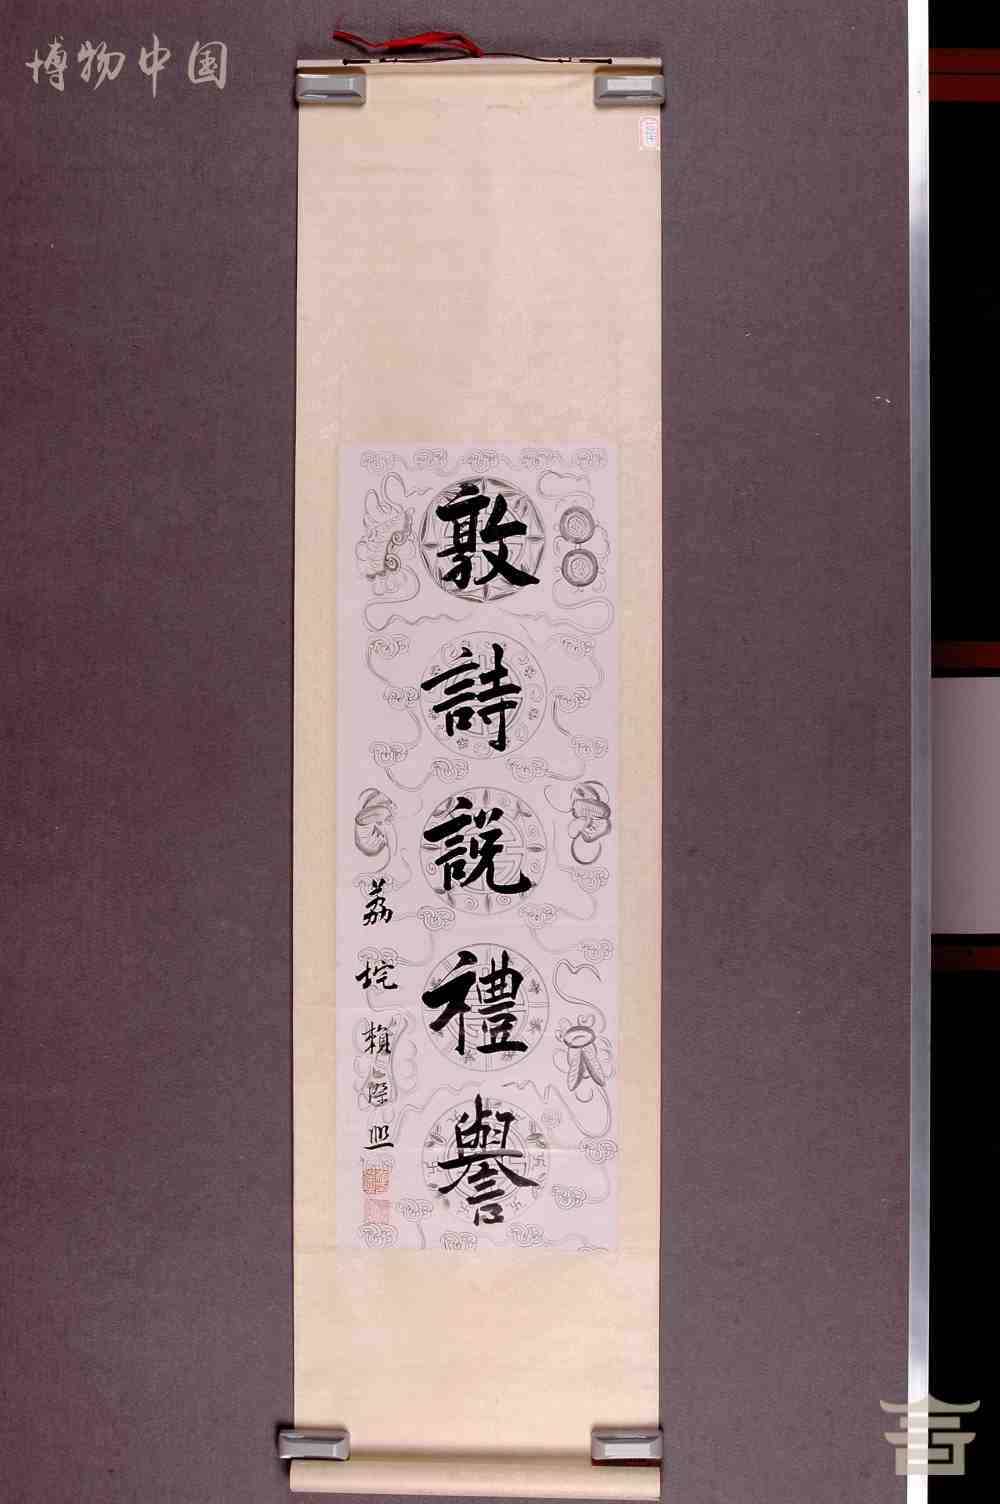 博物中国
敦詩說禮譽
荔垞賴際熙